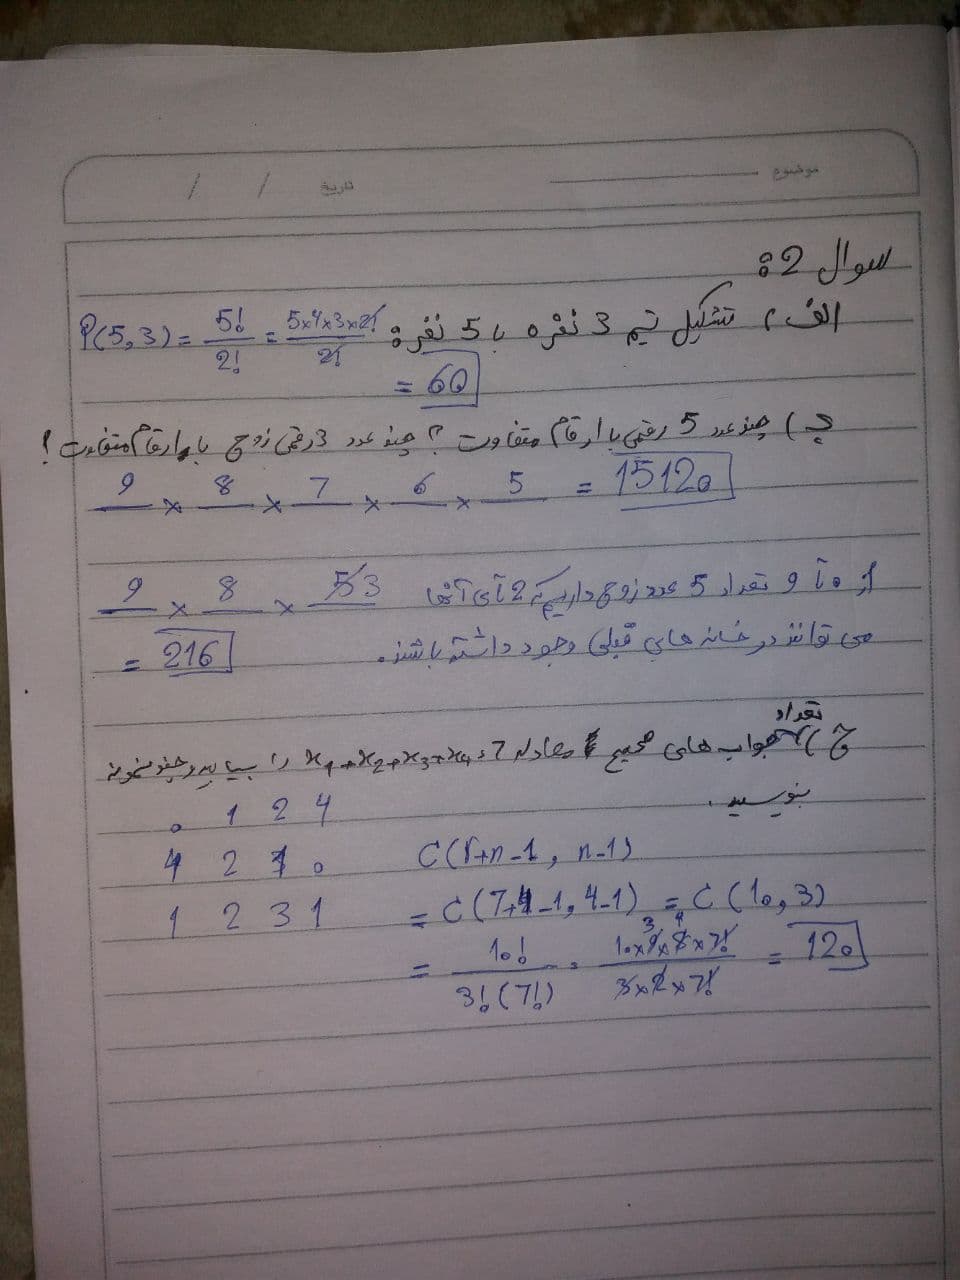 موضوع
تاریخ / /
سوال 2:
الف) تشکیل تیم 3 نفره با 5 نفر: P(5,3) = 5!/2! = 5×4×3×2!/2!
= 60
ب) چند عدد 5 رقمی با ارقام متفاوت؟ چند عدد 3 رقمی زوج با ارقام متفاوت!
9 × 8 × 7 × 6 × 5 = 15120
9 × 8 × 3 از 0 تا 9 تعداد 5 عدد زوج داریم که 2 تای آنها
= 216 می توانند در خانه های قبلی وجود داشته باشند.
ج) تعداد جواب های صحیح معادله x1+x2+x3+x4=7 را بیابید و چند نمونه
بنویسید.
0 1 2 4
4 2 1 0 C(r+n-1, n-1)
1 2 3 1 = C(7+4-1, 4-1) = C(10,3)
= 10!/3!(7!) = 10×9×8×7!/3×2×7! = 120